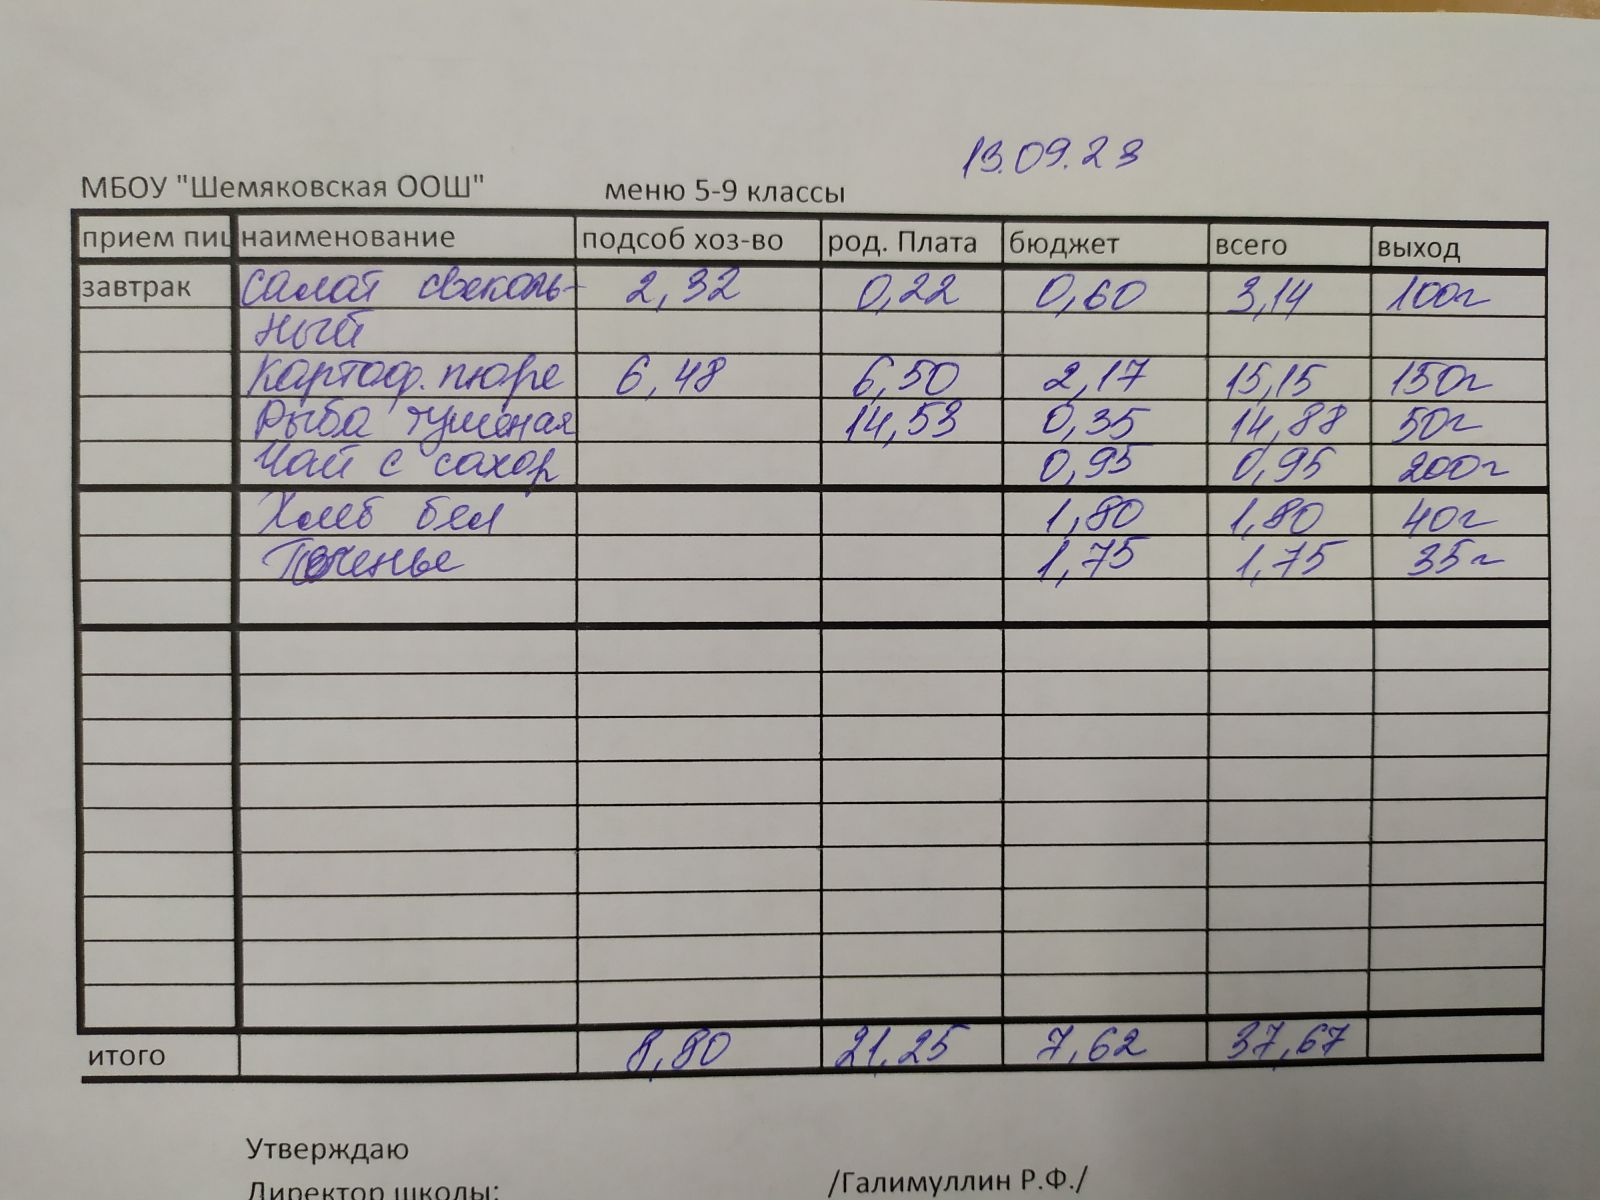 13.09.23
МБОУ "Шемяковская ООШ" меню 5-9 классы
прием пищ наименование подсоб хоз-во род. Плата бюджет всего выход
завтрак Салат свеколь- 2,32 0,22 0,60 3,14 100г
ный
Картоф. пюре 6,48 6,50 2,17 15,15 150г
Рыба тушеная 14,53 0,35 14,88 50г
Чай с сахор 0,95 0,95 200г
Хлеб бел 1,80 1,80 40г
Печенье 1,75 1,75 35г
итого 8,80 21,25 7,62 37,67
Утверждаю
Директор школы: /Галимуллин Р.Ф./